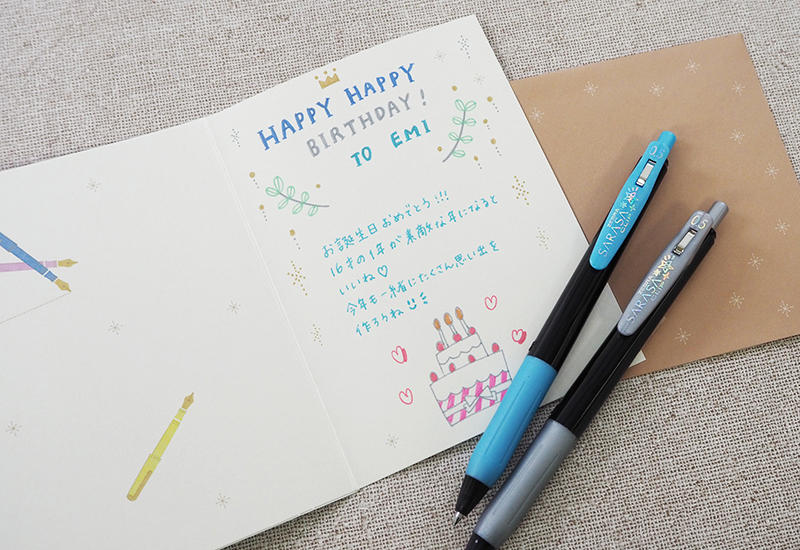 HAPPY HAPPY
BIRTHDAY!
TO EMI
お誕生日おめでとう!!!
16才の1年が素敵な年になると
いいね♡
今年も一緒にたくさん思い出を
作ろうね
0.5
SARASA
0.5
SARASA